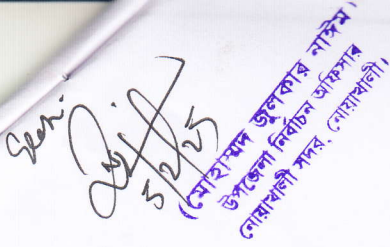 Seen.
৩/২/২৫
(মোহাম্মদ জুলকার নাঈম)
উপজেলা নির্বাচন অফিসার
নোয়াখালী সদর, নোয়াখালী।